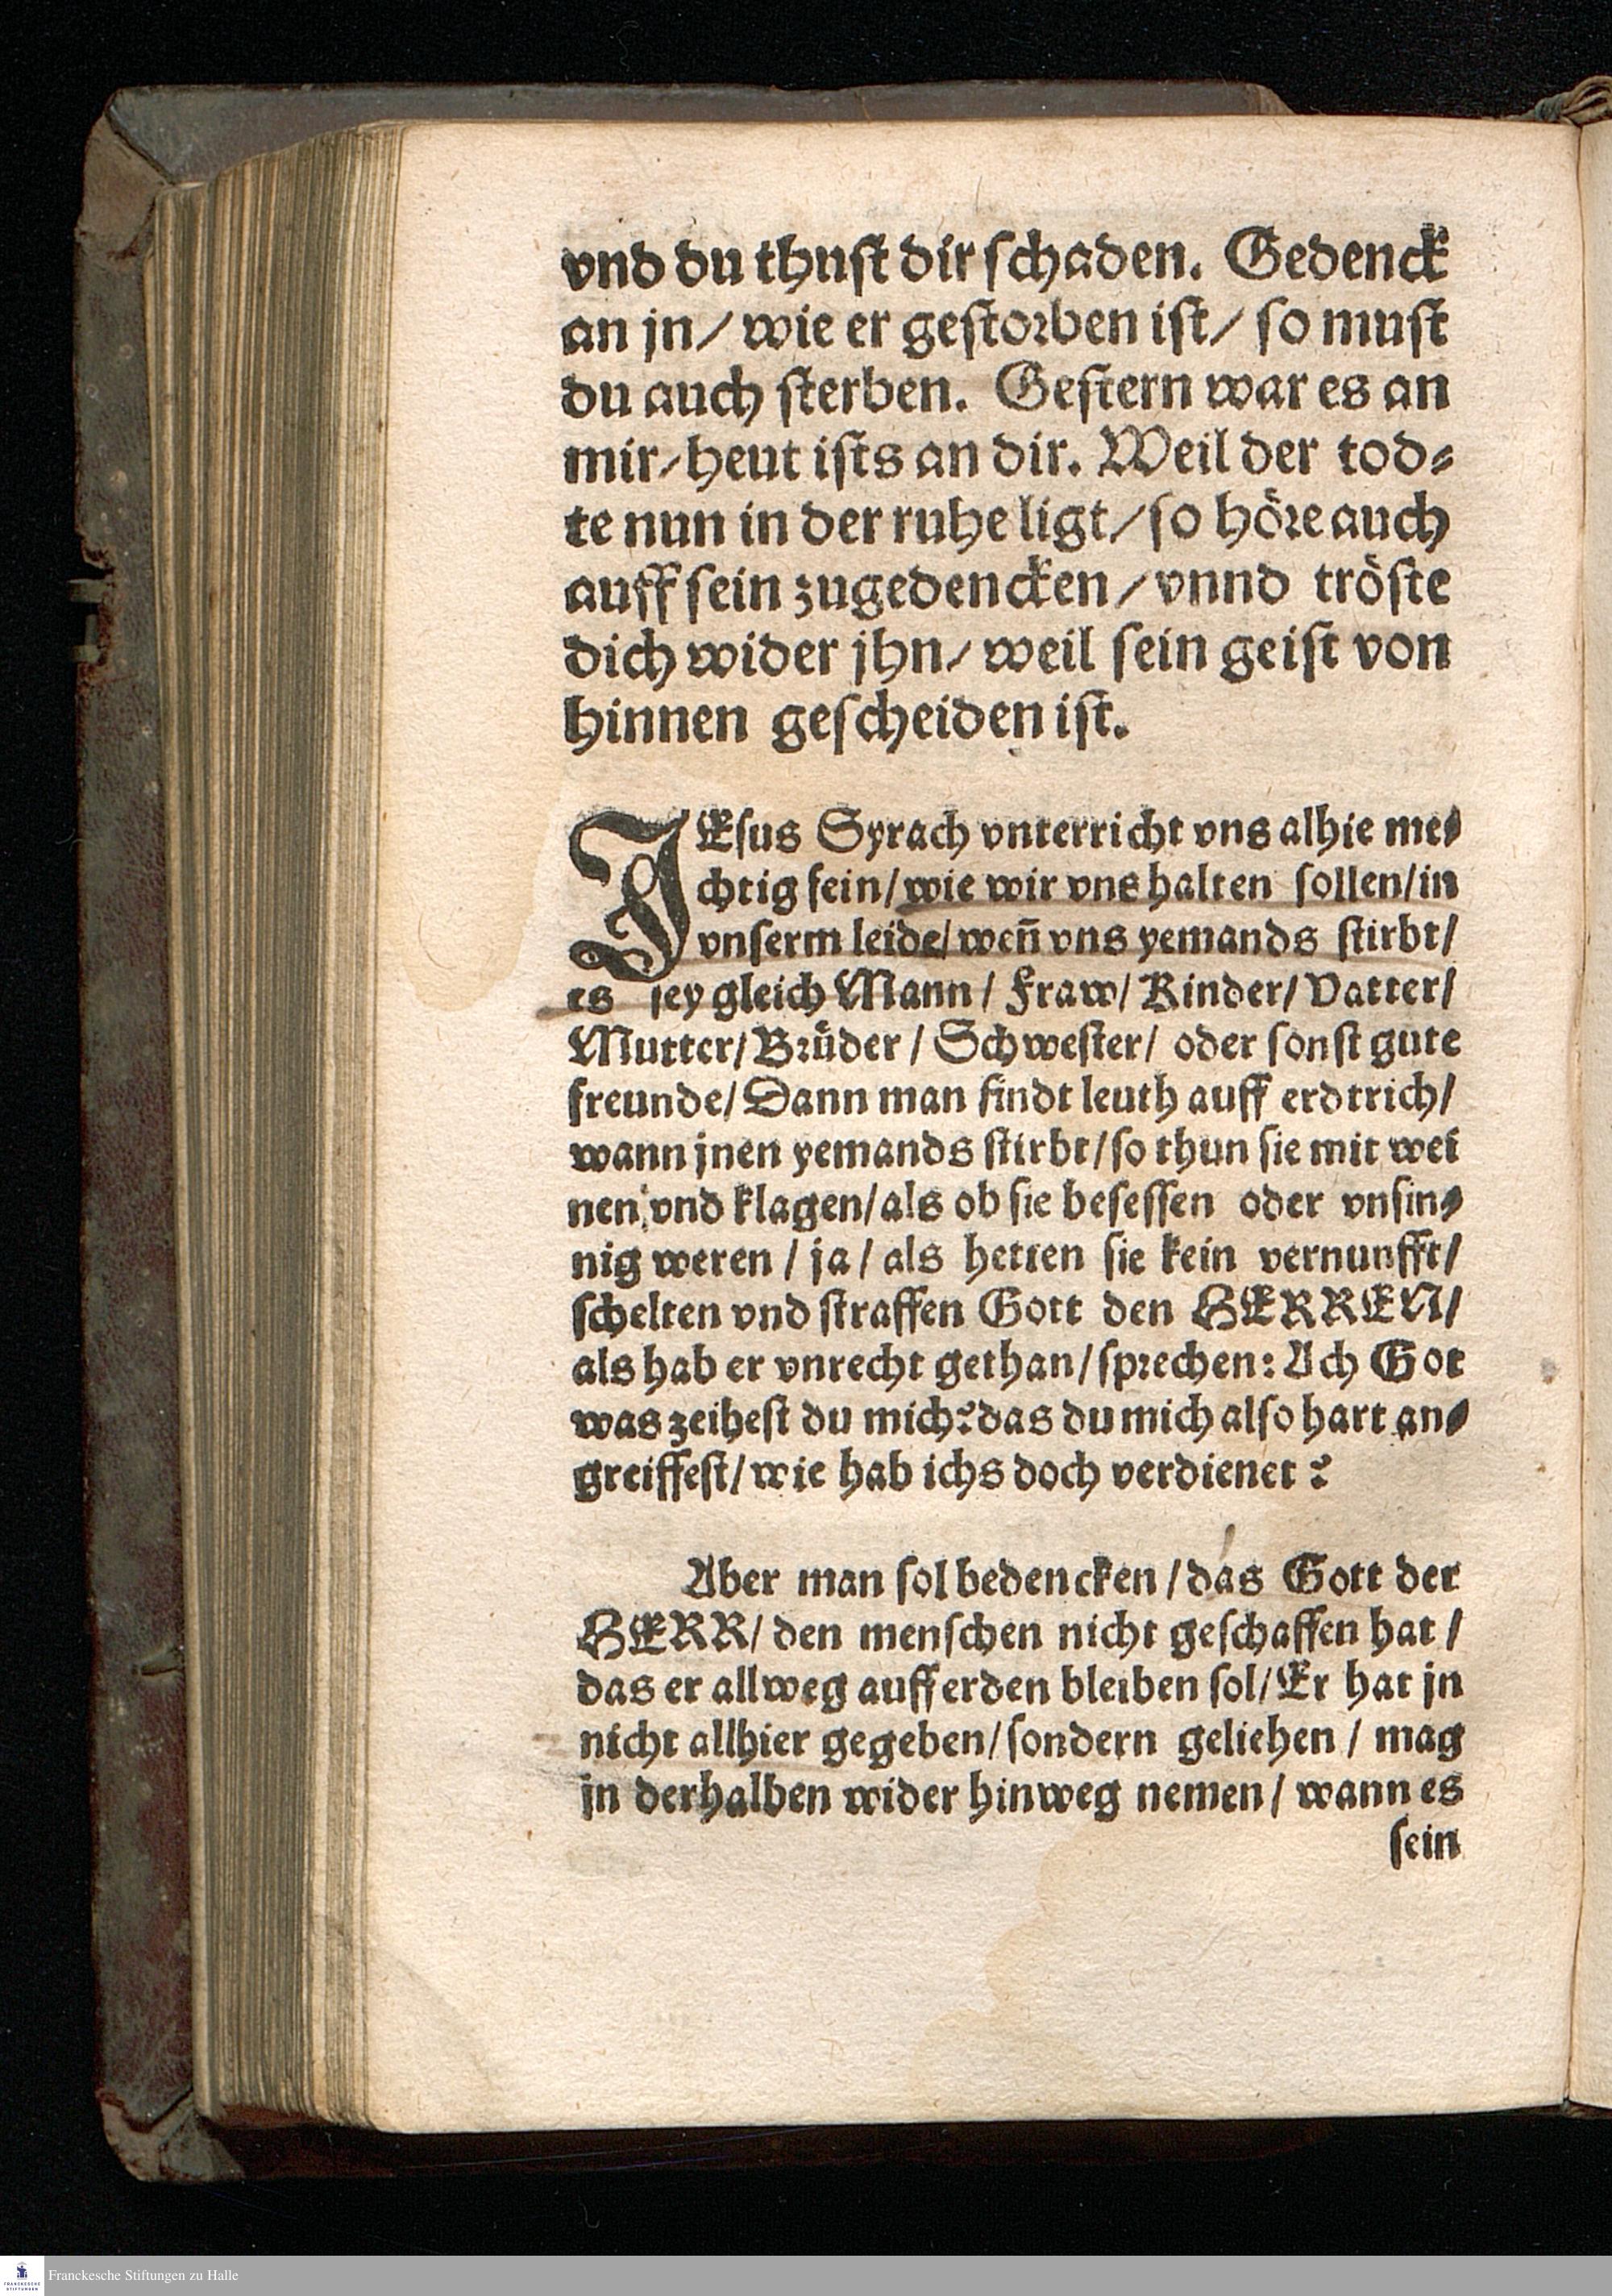 vnd du thust dir schaden. Gedenck
an jn/ wie er gestorben ist/ so must
du auch sterben. Gestern war es an
mir/ heut ists an dir. Weil der tod-
te nun in der ruhe ligt/ so hoͤre auch
auff sein zugedencken/ vnnd tröste
dich wider jhn/ weil sein geist von
hinnen gescheiden ist.
JEsus Syrach vnterricht vns alhie me-
chtig fein/ wie wir vns halten sollen/ in
vnserm leide/ weñ vns yemands stirbt/
es sey gleich Mann/ Fraw/ Kinder/ Vatter/
Mutter/ Bruͤder/ Schwester/ oder sonst gute
freunde/ Dann man findt leuth auff erdtrich/
wann jnen yemands stirbt/ so thun sie mit wei
nen vnd klagen/ als ob sie besessen oder vnsin-
nig weren/ ja/ als hetten sie kein vernunfft/
schelten vnd straffen Gott den HERREN/
als hab er vnrecht gethan/ sprechen: Ach Got
was zeihest du mich? das du mich also hart an-
greiffest/ wie hab ichs doch verdienet?
Aber man sol bedencken/ das Gott der
HERR/ den menschen nicht geschaffen hat/
das er allweg auff erden bleiben sol/ Er hat jn
nicht allhier gegeben/ sondern geliehen/ mag
jn derhalben wider hinweg nemen/ wann es
sein
FRANCKESCHE STIFTUNGEN
Franckesche Stiftungen zu Halle